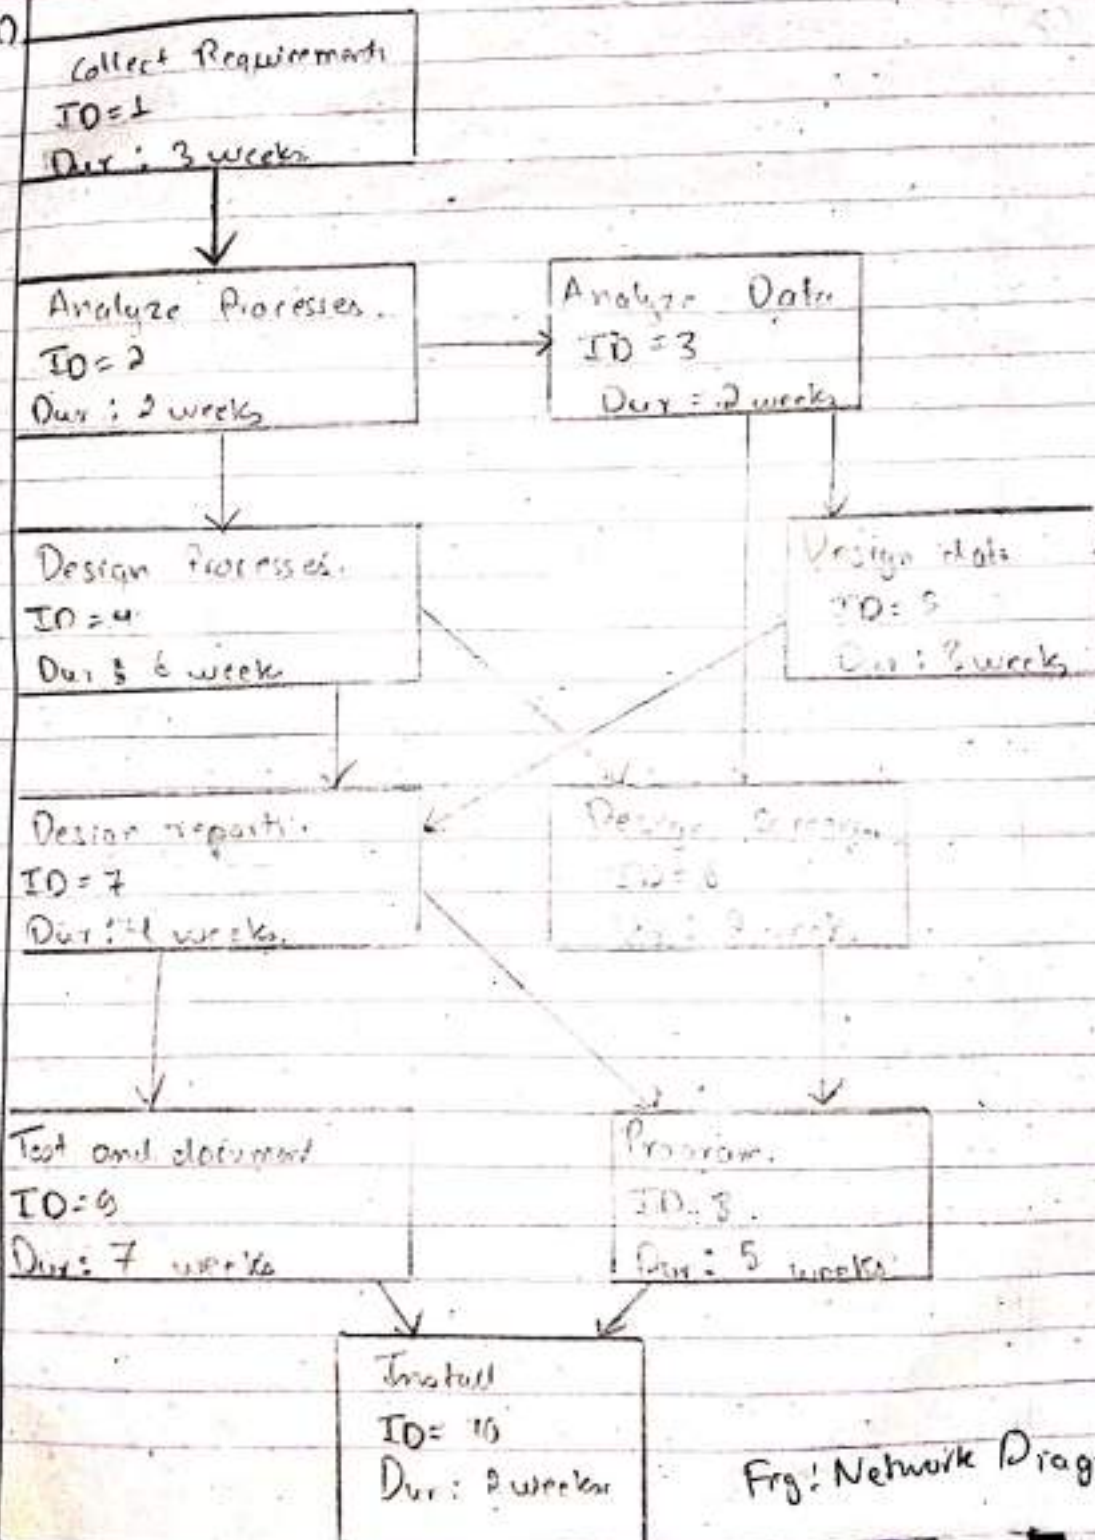 Collect Requirements
ID=1
Dur : 3 weeks
Analyze Processes.
ID=2
Dur : 2 weeks
Analyze Data
ID=3
Dur = 2 weeks
Design Processes.
ID=4
Dur : 6 week
Design data
ID=5
Dur : weeks
Design reports.
ID=7
Dur : 4 weeks.
Design
ID=6
week.
Test and document
ID=9
Dur: 7 weeks
Program.
ID
Dur : 5 weeks
Install
ID= 10
Dur : 2 weeks
Fig: Network Diag